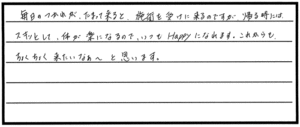 毎日のつかれが、たまって来ると、施術を受けに来るのですが帰る時には、
スキッとして、体が楽になるので、いつもHappyになれます。これからも、
ちょくちょく来たいなぁ〜と思います。